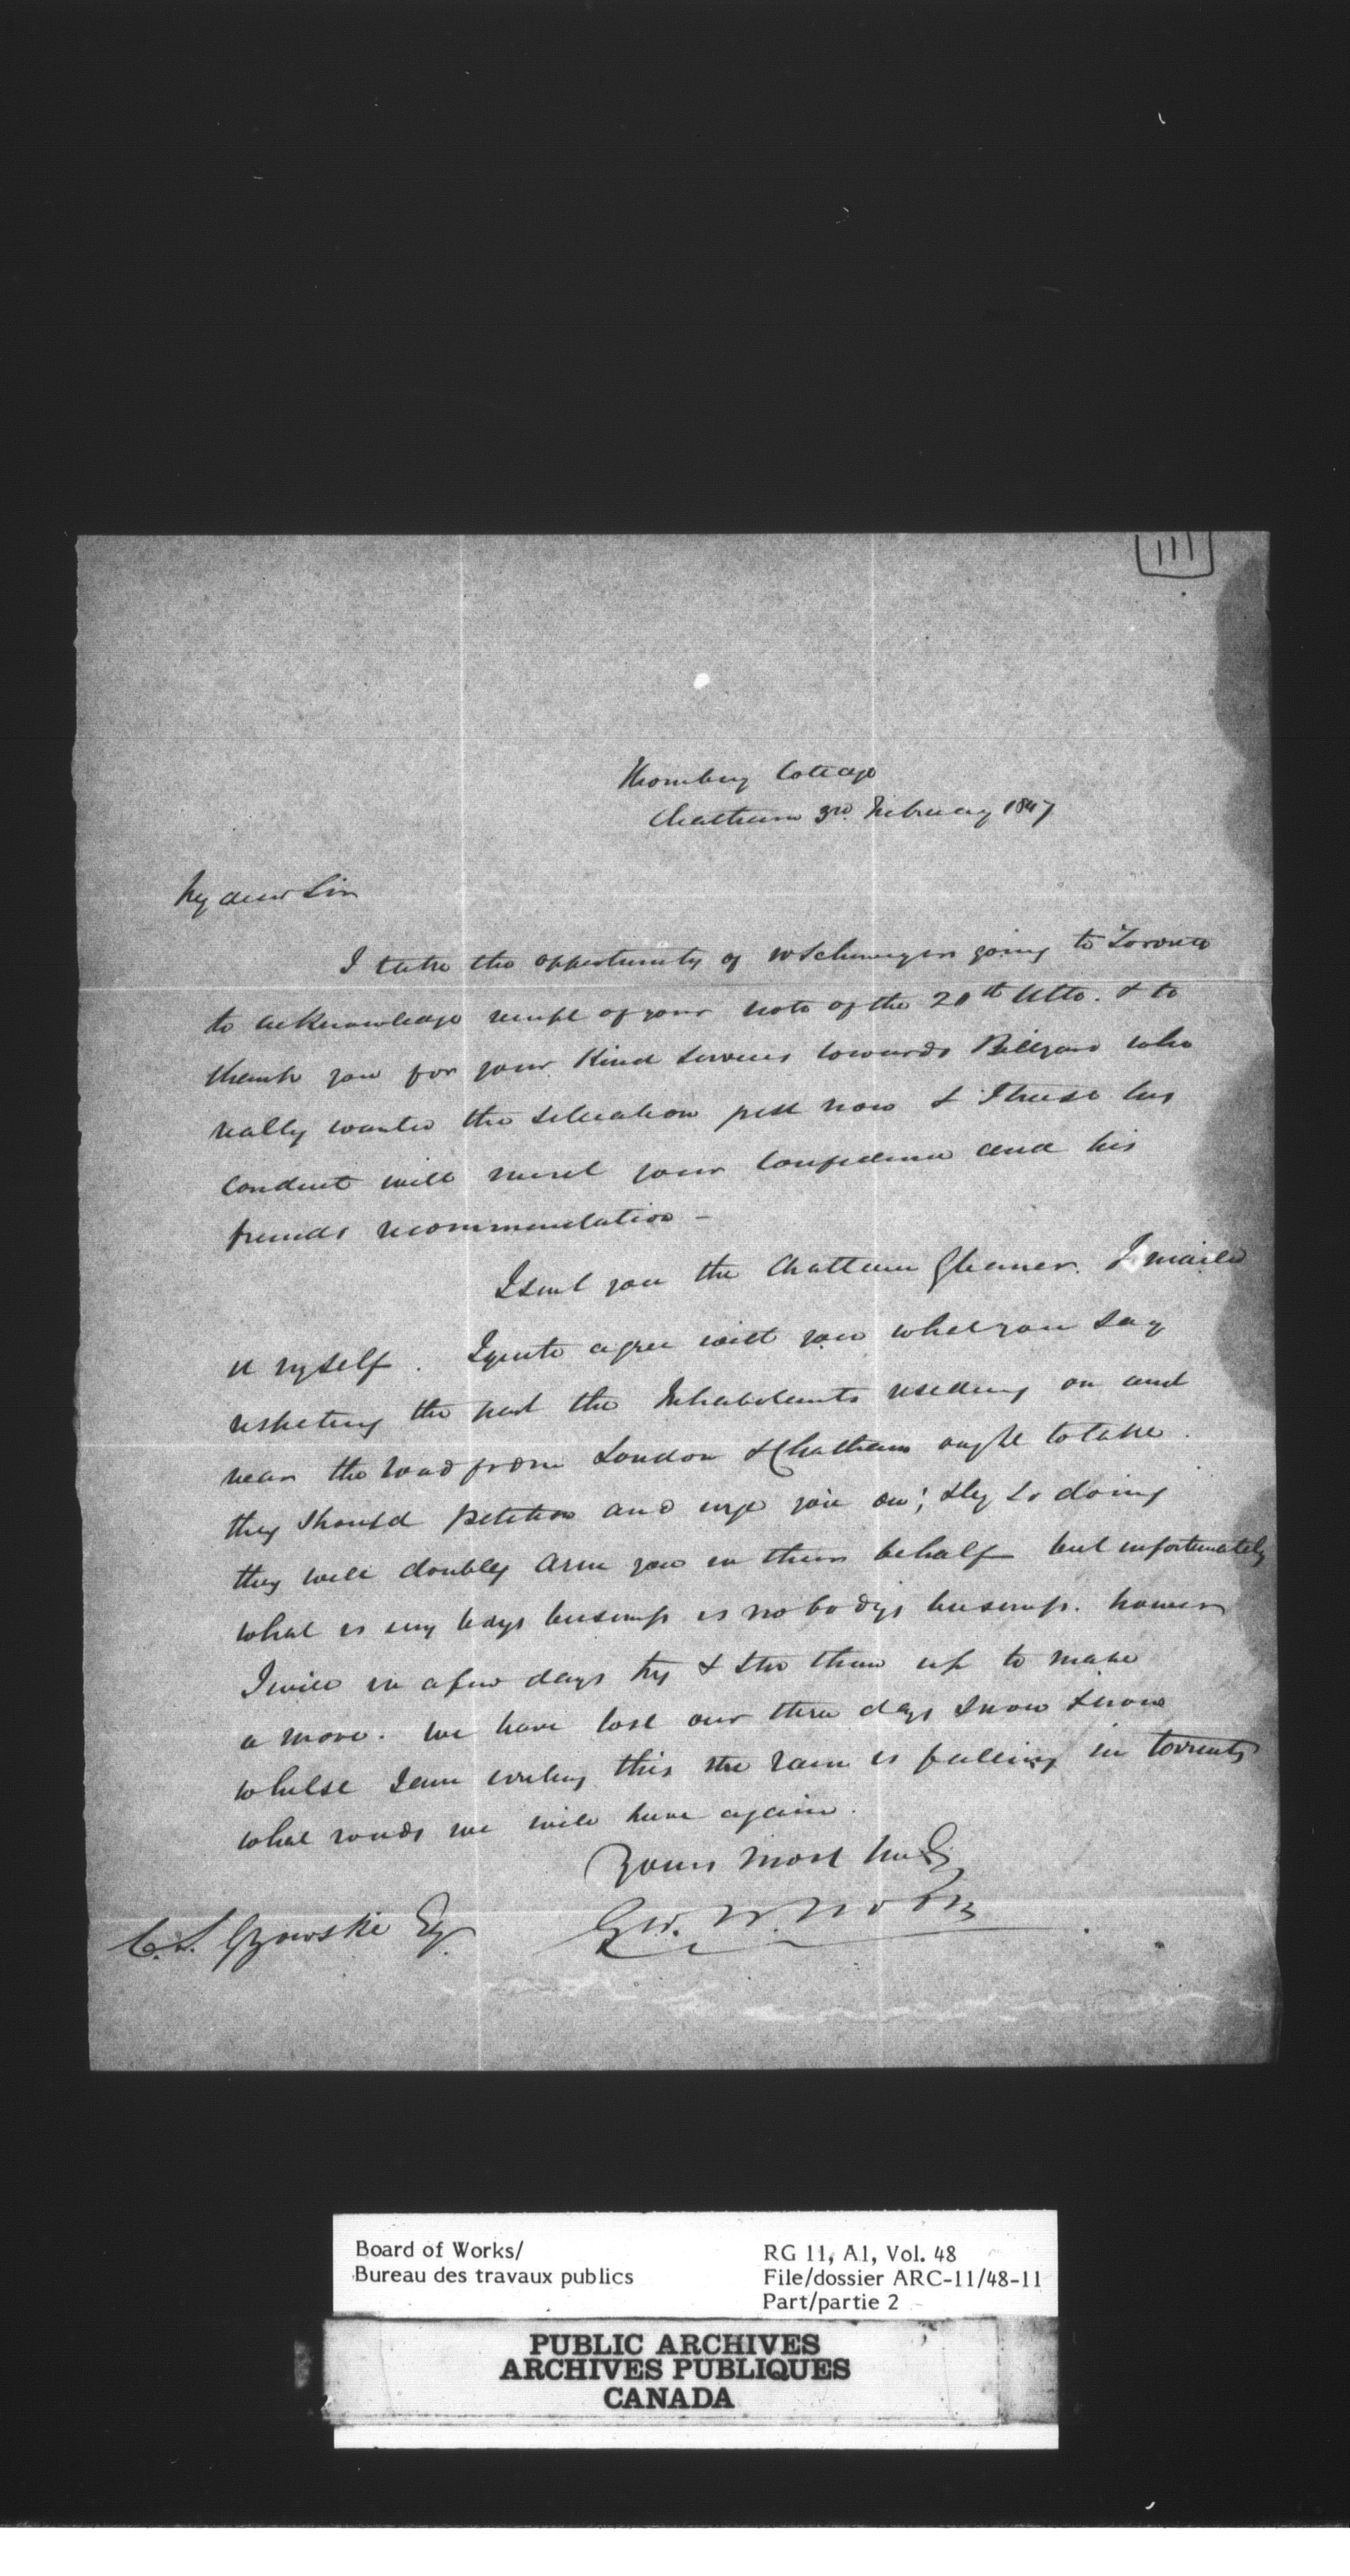 111
Cottage
Chatham 3rd. February 1847
My dear Sir
I take the opportunity of going to Toronto
to acknowledge receipt of your note of the 20th Ulto. & to
thank you for your Kind Services towards who
really wanted the Situation just now & I trust his
Conduct will merit your Confidence and his
friends recommendation –
I sent you the Chatham Gleaner. I mailed
it myself. I quite agree with you what you say
respecting the part the Inhabitants residing on and
near the road from London & Chatham ought to take.
they should petition and urge you on; & by so doing
they will doubly arm you in their behalf but unfortunately
what is evy bodys business is nobodys business. however
I will in a few days try & stir them up to make
a move. we have lost our three days snow & now
whilse I am writing this the rain is falling in torrents
what roads we will have again.
Yours most truly
C. S. Gzowski Esq.
Board of Works/
Bureau des travaux publics
RG 11, A1, Vol. 48
File/dossier ARC-11/48-11
Part/partie 2
PUBLIC ARCHIVES
ARCHIVES PUBLIQUES
CANADA